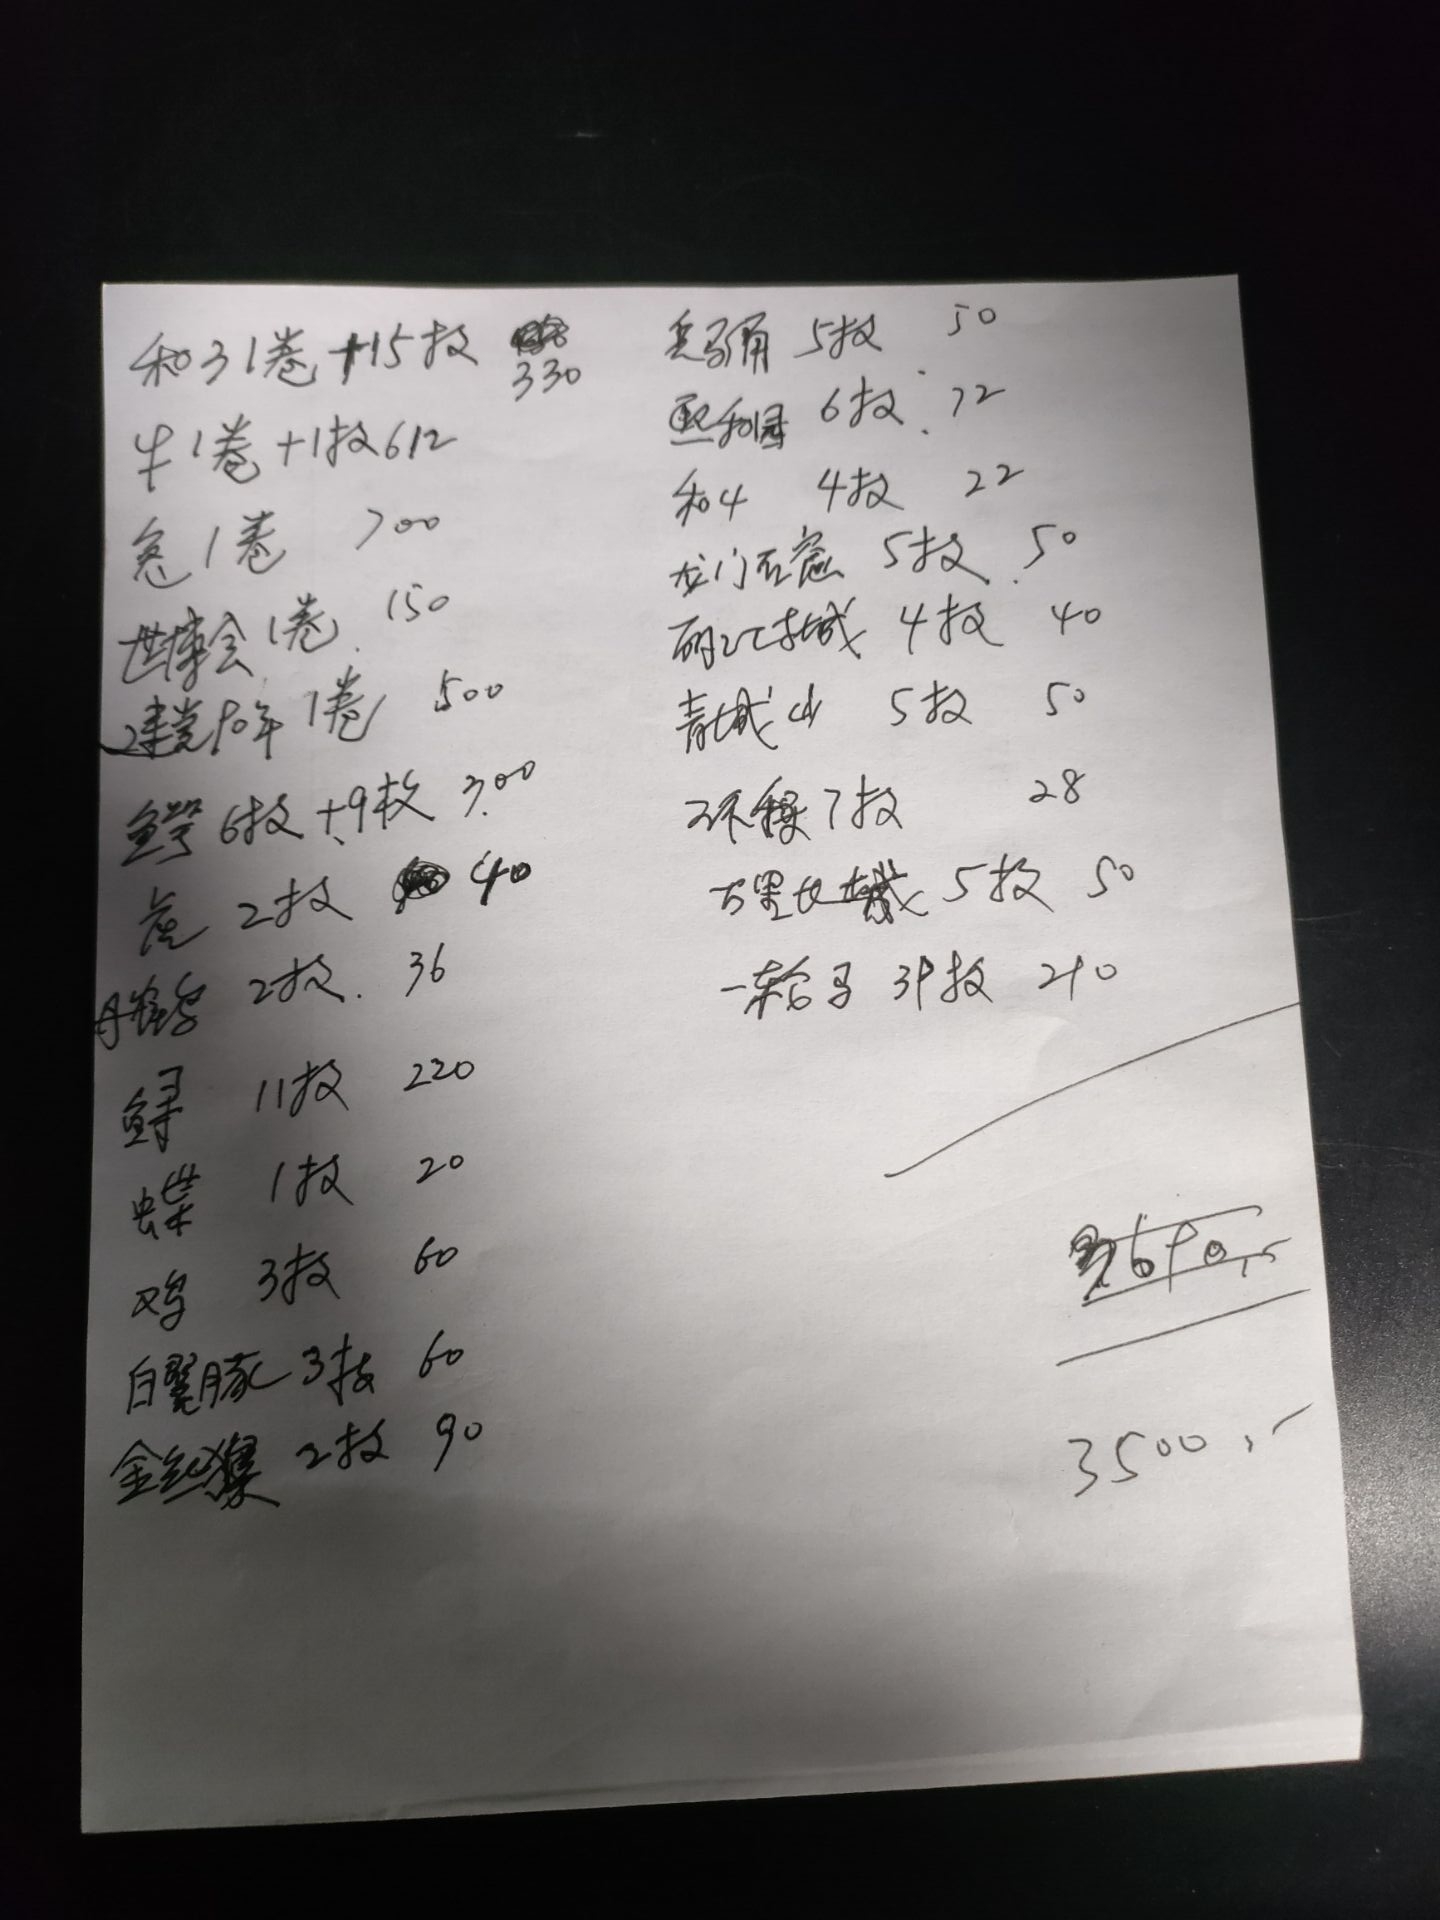 和3 1卷+15枚 330
牛1卷+1枚 612
1卷 700
世博会 1卷 150
建党90年 1卷 500
鳄 6枚+9枚 300
虎 2枚 40
丹顶鹤 2枚 36
鲟 11枚 220
蝶 1枚 20
鸡 3枚 60
白暨豚 3枚 60
金丝猴 2枚 90
兵马俑 5枚 50
6枚 72
和4 4枚 22
龙门石窟 5枚 50
丽江古城 4枚 40
青城山 5枚 50
环保 7枚 28
万里长城 5枚 50
一轮马 39枚 290
3690.-
3500.-